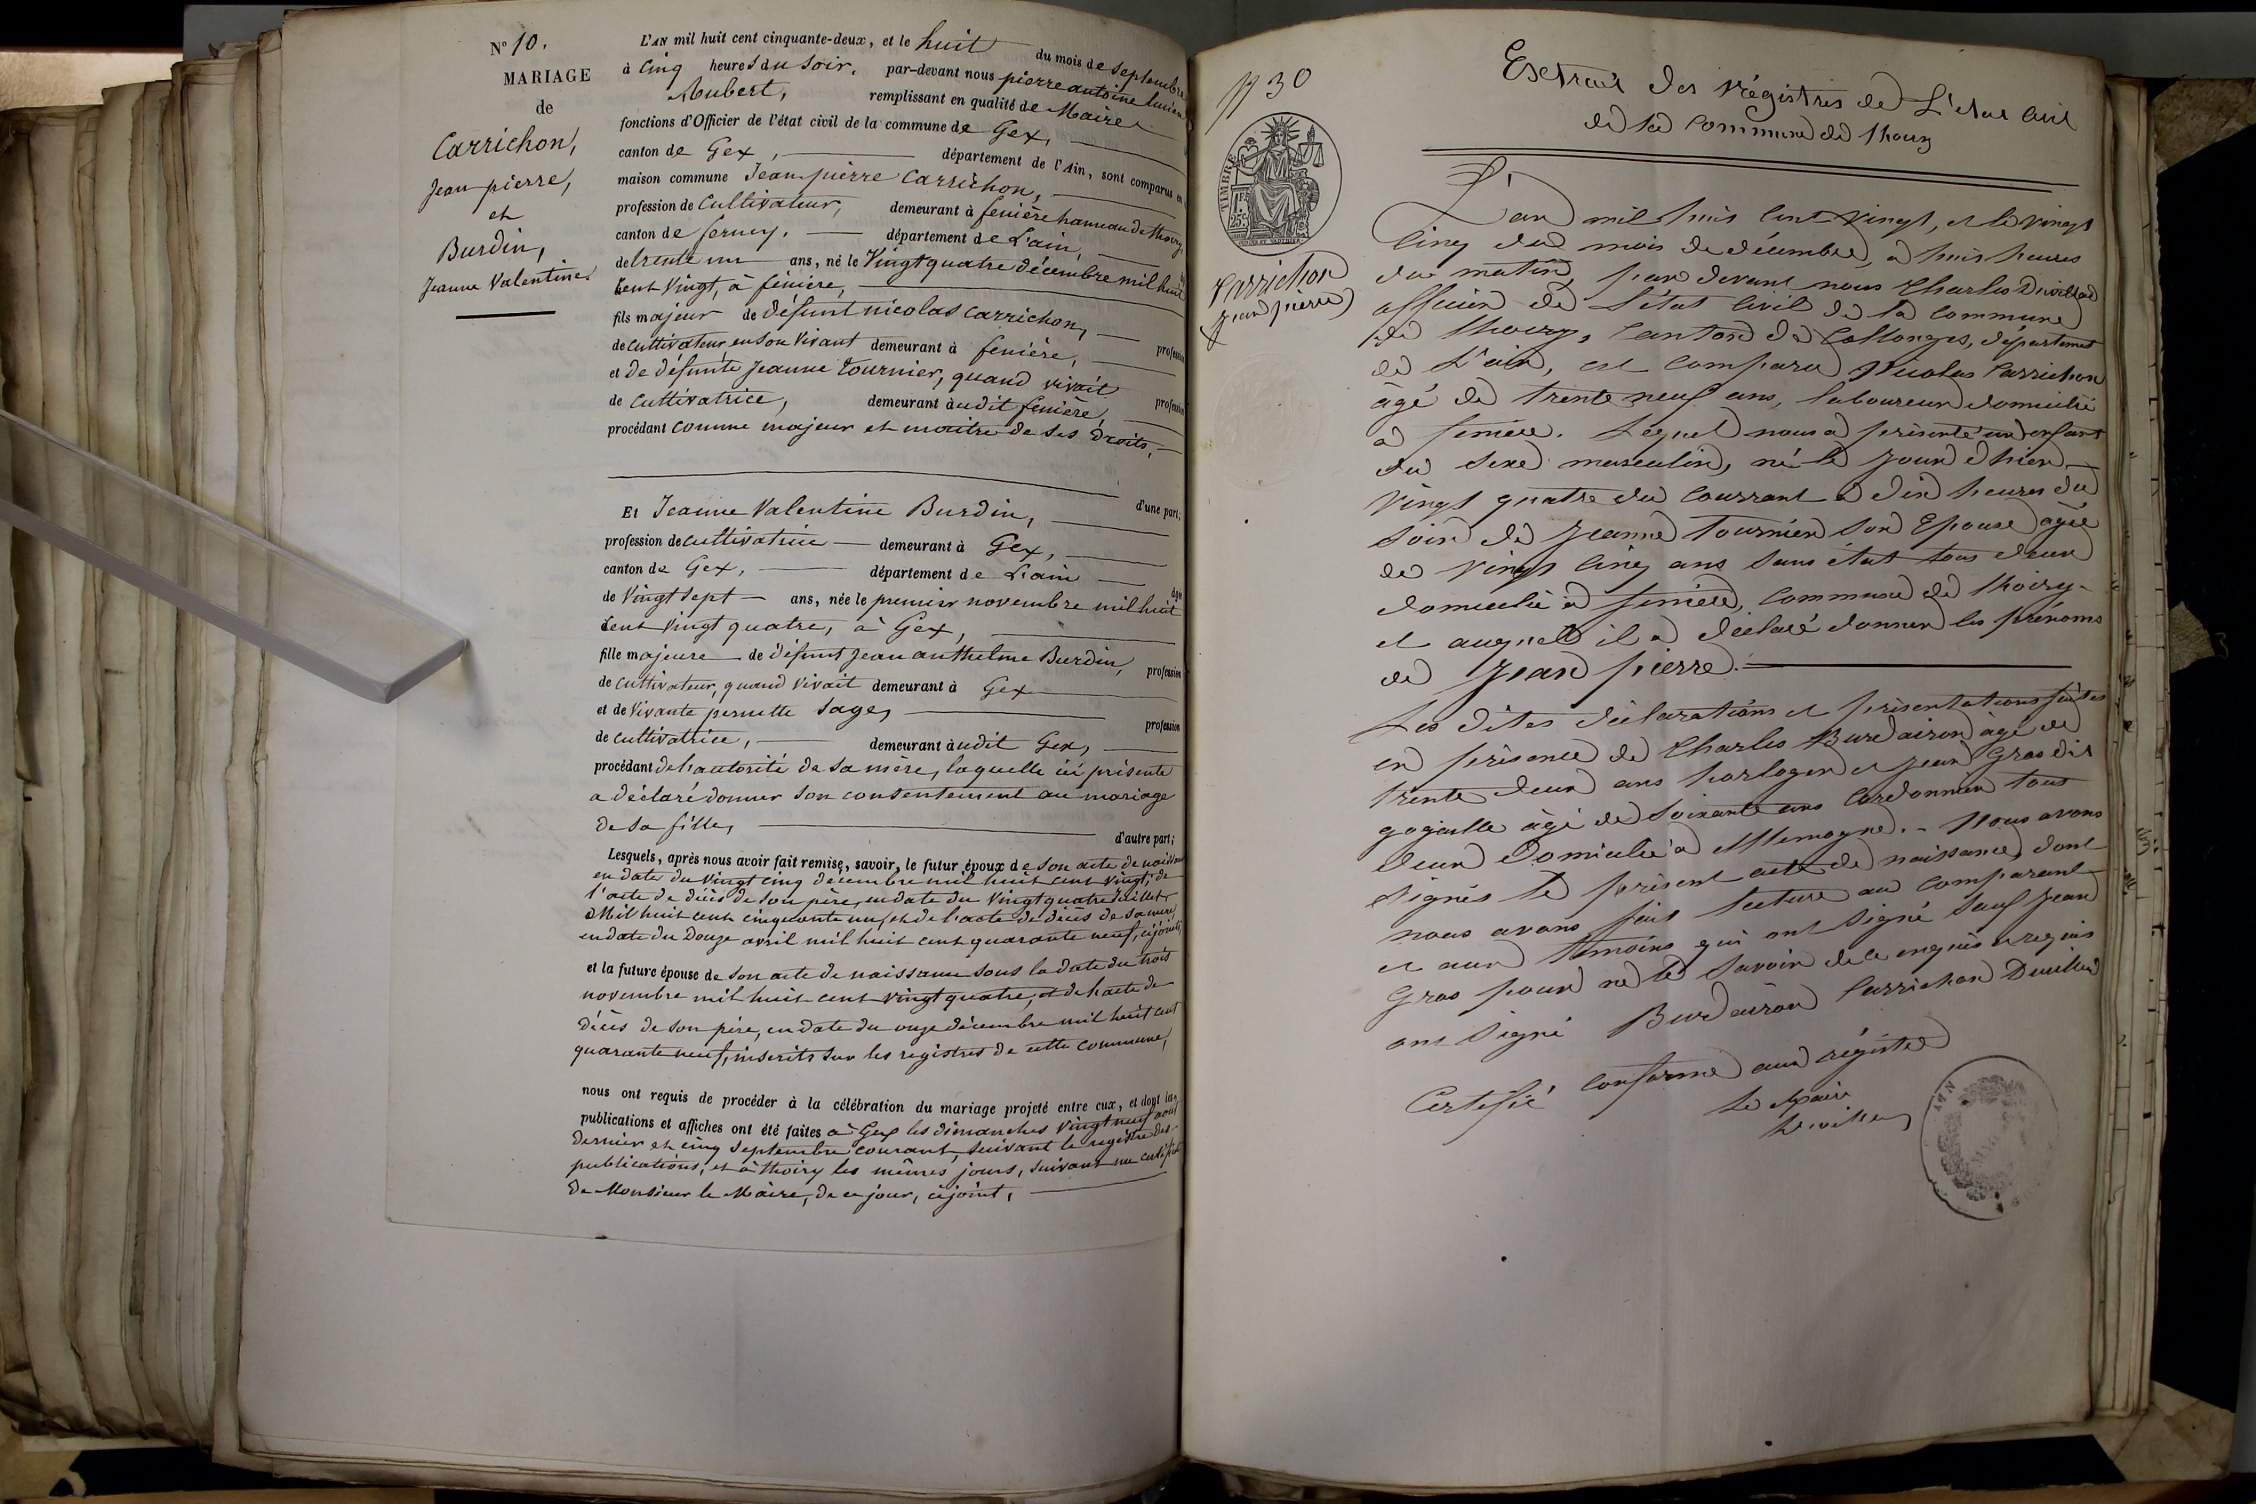 N° 10.
MARIAGE
de
Carrichon,
Jean pierre,
et
Burdin,
Jeanne Valentine
L'AN mil huit cent cinquante-deux, et le huit du mois de septembre
à cinq heures du soir, par-devant nous pierre antoine lucien
Aubert, remplissant en qualité de Maire
fonctions d'Officier de l'état civil de la commune de Gex,
canton de Gex, département de l'Ain, sont comparus en
maison commune Jean-pierre Carrichon,
profession de Cultivateur, demeurant à fenière hameau de thoiry
canton de ferney, département de L'ain,
de trente un ans, né le Vingt quatre décembre mil huit
Cent Vingt, à fenière,
fils majeur de défunt nicolas Carrichon, profession
de cultivateur en son Vivant demeurant à fenière,
et de défunte Jeanne Tournier, quand vivait profession
de cultivatrice, demeurant àudit fenière,
procédant comme majeur et maitre de ses Droits,
d'une part;
Et Jeanne Valentine Burdin,
profession de cultivatrice demeurant à Gex,
canton de Gex, département de L'ain âgée
de Vingt sept ans, née le premier novembre mil huit
Cent Vingt quatre, à Gex,
fille majeure de défunt Jean anthelme Burdin, profession
de cultivateur, quand vivait demeurant à Gex
et de Vivante pernette Sage, profession
de cultivatrice, demeurant àudit Gex,
procédant de l'autorité de sa mère, laquelle ici présente
a déclaré donner son consentement au mariage
de sa fille,
d'autre part;
Lesquels, après nous avoir fait remise, savoir, le futur époux de son acte de naissance
en date du Vingt cinq décembre mil huit cent vingt, de
l'acte de décès de son père, en date du Vingt quatre juillet
Mil huit cent cinquante un, et de l'acte de décès de sa mère
en date du Douze avril mil huit cent quarante neuf, cijoints
et la future épouse de son acte de naissance sous la date du trois
novembre mil huit cent vingt quatre, et de l'acte de
décès de son père, en date du onze décembre mil huit cent
quarante neuf, inscrits sur les registres de cette commune,
nous ont requis de procéder à la célébration du mariage projeté entre eux, et dont les
publications et affiches ont été faites à Gex les dimanches Vingt neuf aout
dernier et cinq septembre courant, suivant le registre des
publications, et à thoiry les mêmes jours, suivant un certificat
de Monsieur le Maire, de ce jour, cijoint,
Extrait des régistres de L'état Civil
de la commune de thoiry
N 30
TIMBRE
1F.
25c.
Carrichon
Jean pierre
L'an mil huit Cent vingt, et le vingt
Cinq du mois de décembre, à huit heures
du matin, par devant nous Charles Duvillard
officier de l'état Civil de la commune
de thoiry, canton de Collonges, département
de L'ain, est Comparu Nicolas Carrichon
âgé de trente neuf ans, laboureur domicilié
à fenière. Lequel nous a présenté un enfant
du sexe masculin, né le jour d'hier
vingt quatre du courrant à dix heures du
soir de Jeanne tournier son Epouse âgée
de vingt cinq ans sans état tous deux
domicilié à fenière, commune de thoiry
et auquel il a déclaré donner les prénoms
de Jean pierre.
Les dites déclarations et présentations faites
en présence de Charles Burdairon âgé de
trente deux ans horloger et Jean Gros dit
gogaille âgé de soixante ans Cordonnier tous
deux Domicilié à Allemogne. Nous avons
signés le présent acte de naissance, dont
nous avons fait lecture au comparant
et aux témoins qui ont signé sauf Jean
Gros pour ne le savoir de ce enquis et requis
ont signé Burdairon Carrichon Duvillard
Certifié conforme aux régistres
Le Maire
Duvillard
AIN